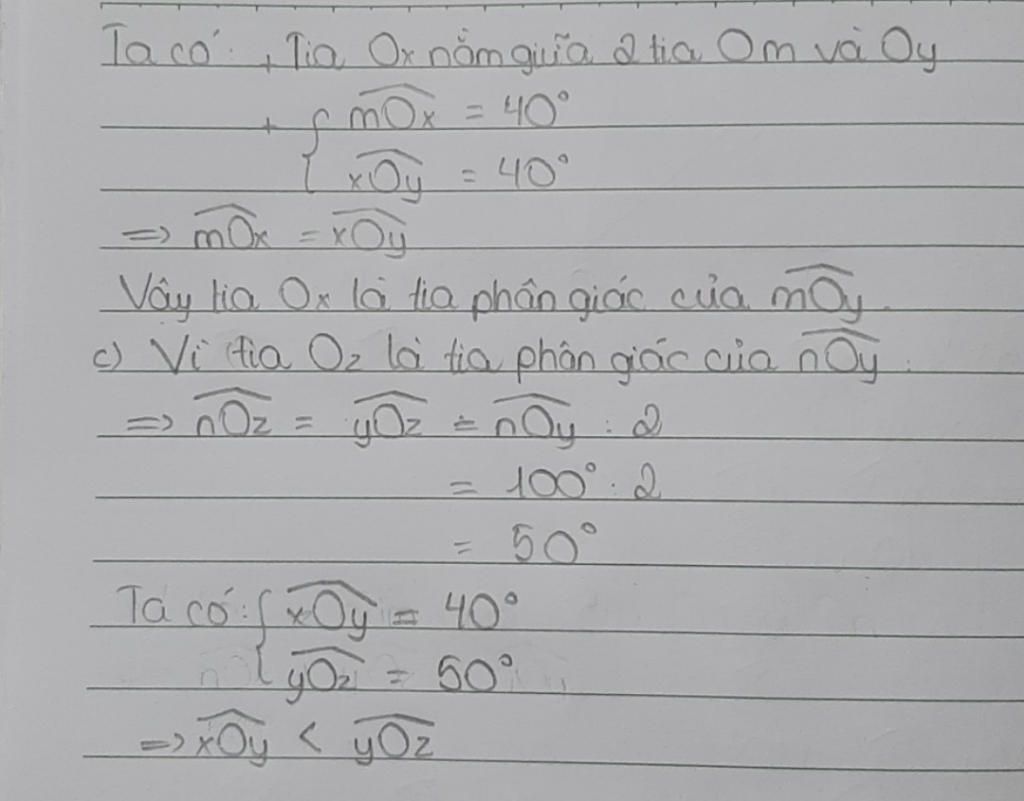 Ta có: + Tia Ox nằm giữa 2 tia Om và Oy
+ { m͡Ox = 40°
x͡Oy = 40°
=> m͡Ox = x͡Oy
Vậy tia Ox là tia phân giác của m͡Oy.
c) Vì tia Oz là tia phân giác của n͡Oy.
=> n͡Oz = y͡Oz = n͡Oy : 2
= 100° : 2
= 50°
Ta có: { x͡Oy = 40°
y͡Oz = 50°
=> x͡Oy < y͡Oz